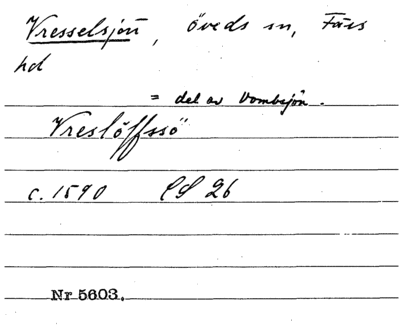 Vresselsjön, Öveds sn, Färs
hd
= del av Vombsjön.
Vreslöffssö
c. 1590 CS 26
Nr 5603.